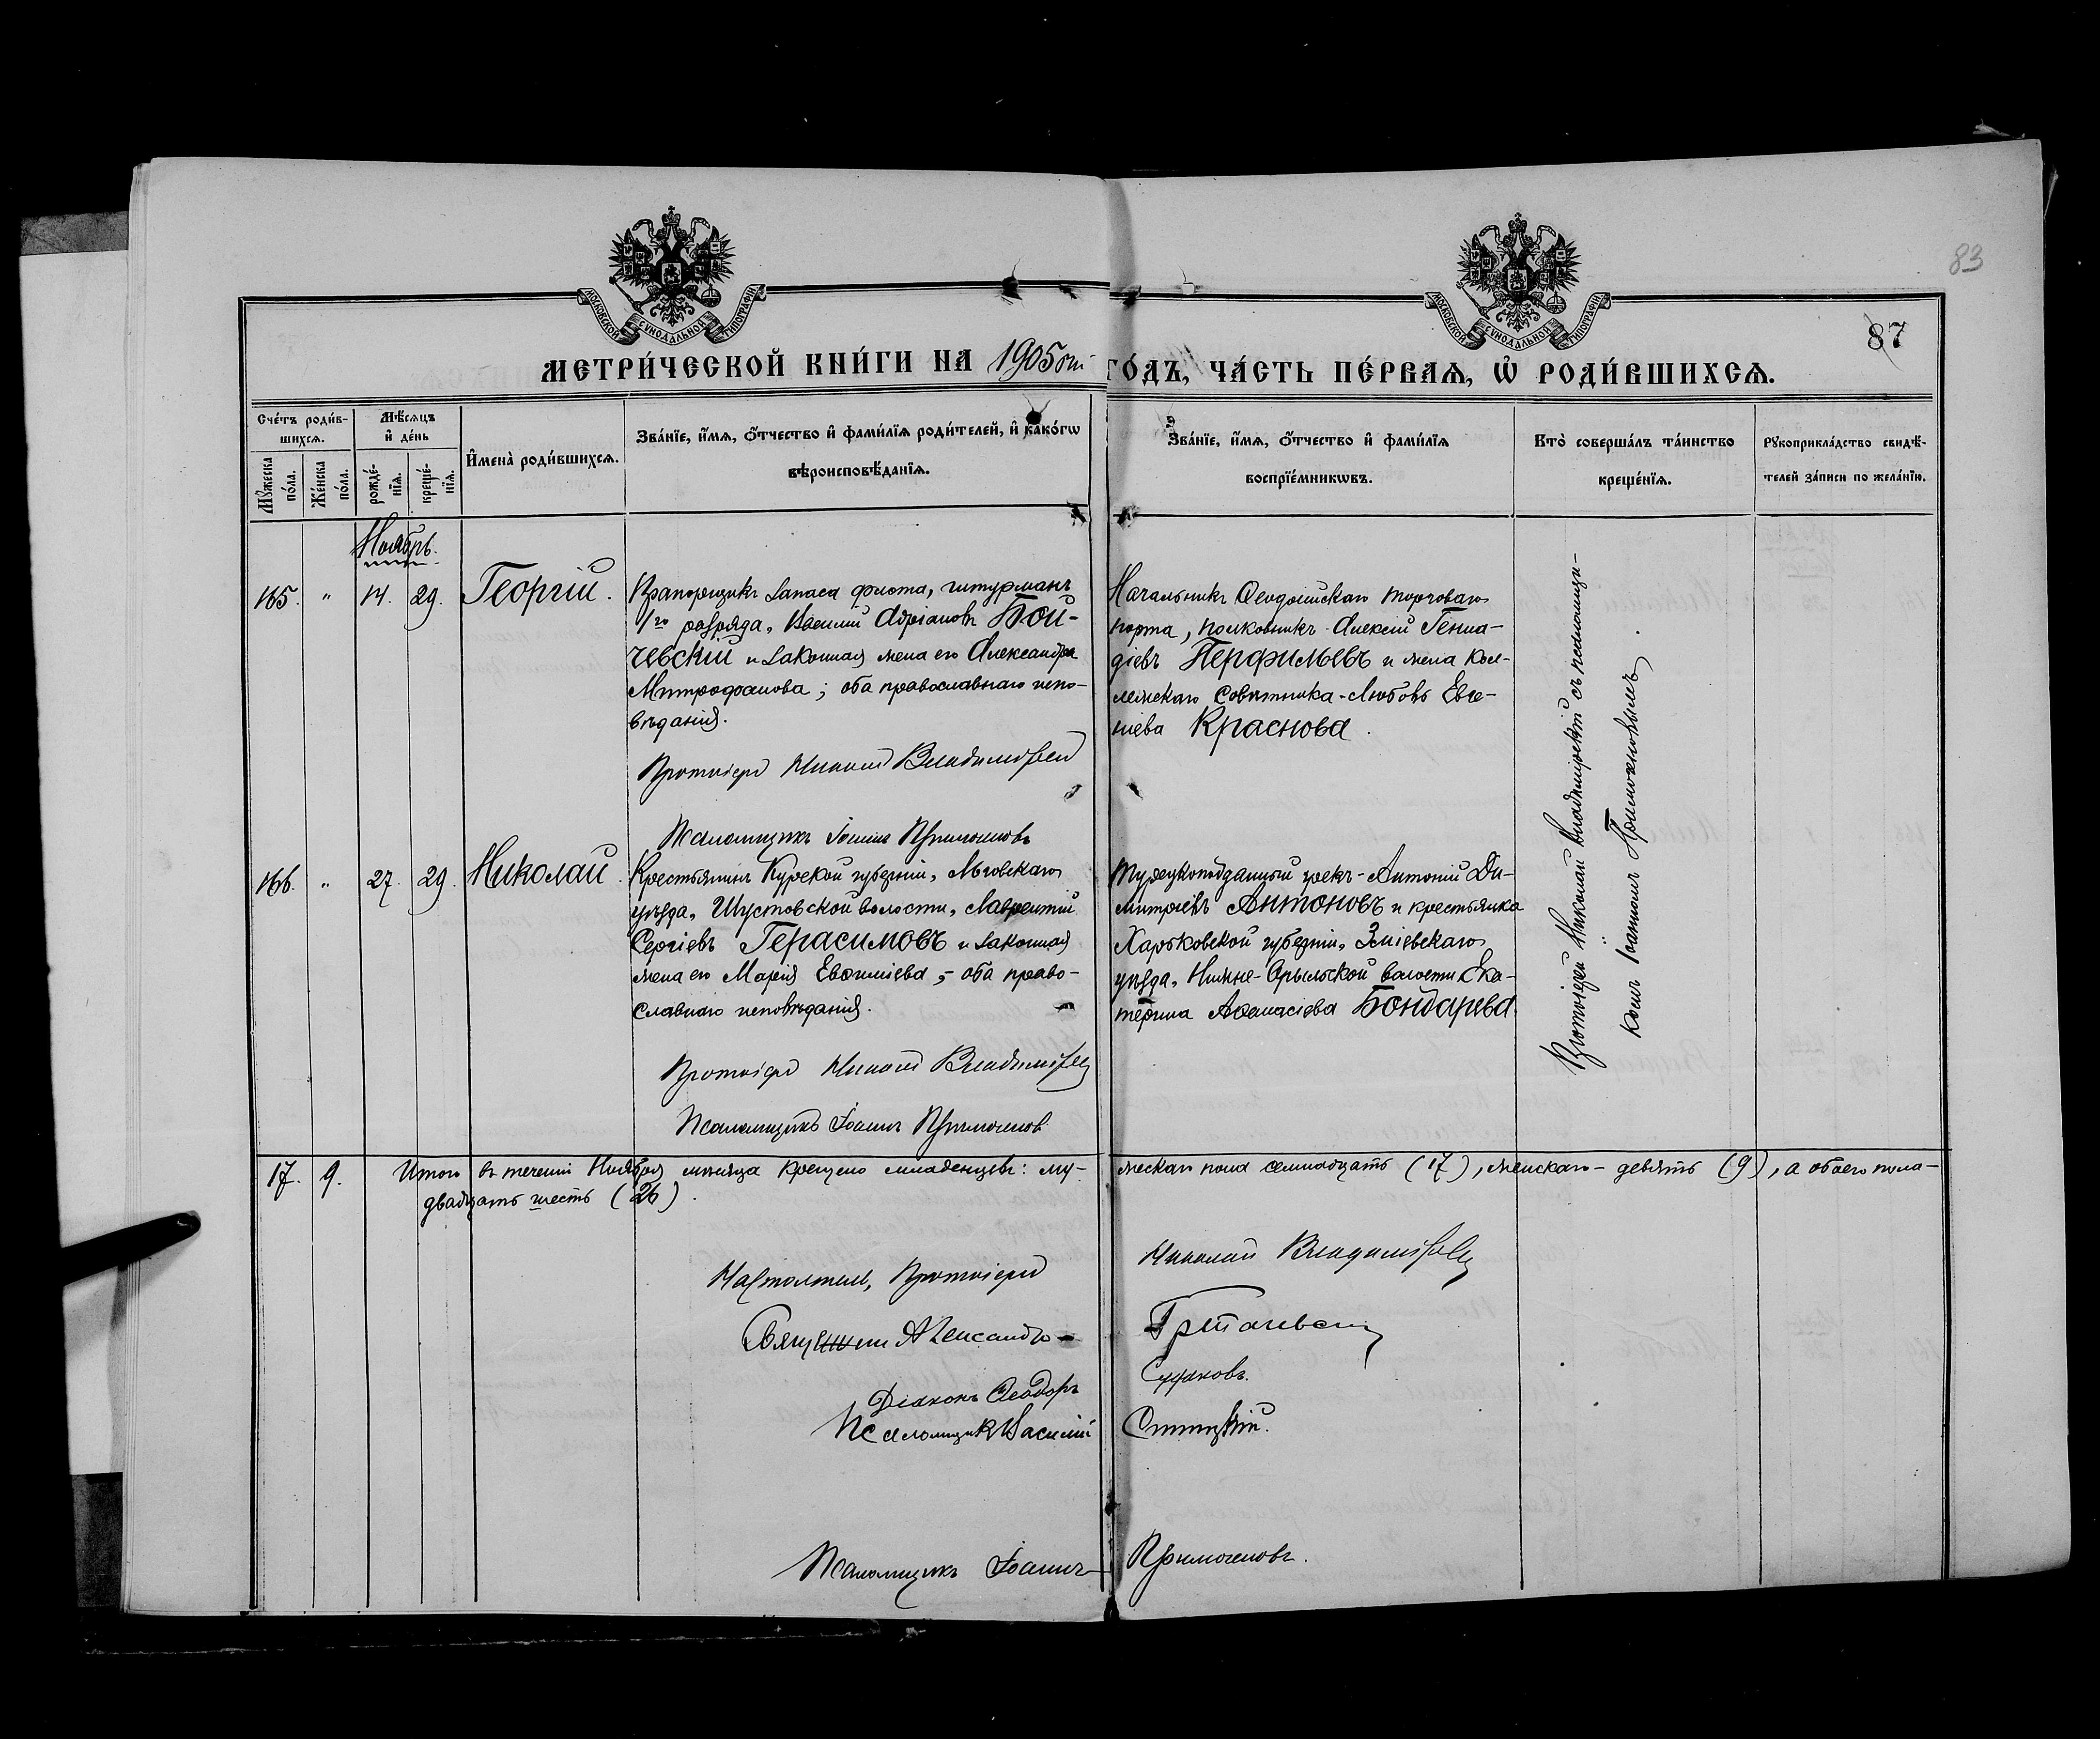 83
87
МОСКОВСКОЙ СѴНОДАЛЬНОЙ ТИПОГРАФІИ
МОСКОВСКОЙ СѴНОДАЛЬНОЙ ТИПОГРАФІИ
МЕТРИ́ЧЕСКОЙ КНИ́ГИ НА 1905ый ГО́ДЪ, ЧА́СТЬ ПЕ́РВАѦ, Ѽ РОДИ́ВШИХСѦ.
Сче́тъ роди́в-
шихсѧ.
Мꙋ́жеска по́ла.
Же́нска по́ла.
Мѣ́сѧцъ
и҆ де́нь
рожде́-
нїѧ.
креще́-
нїѧ.
И҆мена̀ роди́вшихсѧ.
Зва́нїе, и҆́мѧ, ѻ҆́тчество и҆ фами́лїѧ роди́телей, и҆ како́гѡ
вѣроисповѣ́данїѧ.
Зва́нїе, и҆́мѧ, ѻ҆́тчество и҆ фами́лїѧ
воспрїе́мникѡвъ.
Кто̀ соверша́лъ та́инство
креще́нїѧ.
Рꙋкоприкла́дство свидѣ́-
телей за́писи по жела́нїю.
Ноябрь.
165. " 14. 29. Георгій.
Прапорщикъ запаса флота, штурманъ
1/го разряда, Василій Адріановъ Бой-
чевскій и законная жена его Александра
Митрофанова; оба православнаго испо-
вѣданія.
Протоіерей Николай Владимірскій
Псаломщикъ Іоаннъ Примоченовъ
Начальникъ Ѳеодосійскаго торговаго
порта, полковникъ Алексій Генна-
діевъ Перфильевъ и жена Кол-
лежскаго Совѣтника - Любовь Евге-
ніева Краснова.
Протоіерей Николай Владимірскій съ псаломщи-
комъ Іоанномъ Примоченовымъ.
166. " 27. 29. Николай.
Крестьянинъ Курской губерніи, Льговскаго
уѣзда, Шустовской волости, Лаврентій
Сергіевъ Герасимовъ и законная
жена его Марія Евѳиміева; - оба право-
славнаго исповѣданія.
Протоіерей Николай Владимірскій
Псаломщикъ Іоаннъ Примоченовъ
Турецкоподданный грекъ - Антоній Ди-
митріевъ Антоновъ и крестьянка
Харьковской губерніи, Зміевскаго
уѣзда, Нижне-Орыльской волости Ека-
терина Аѳанасіева Бондарева
17. 9. Итого въ теченіи Ноября мѣсяца крещено младенцевъ: му-
жескаго пола семнадцать (17), женскаго - девять (9), а обоего пола -
двадцать шесть (26).
Настоятель, Протоіерей Николай Владимірскій
Священникъ Александръ
Діаконъ Ѳеодоръ Судаковъ.
Псаломщикъ Василій
Псаломщикъ Іоаннъ Примоченовъ.